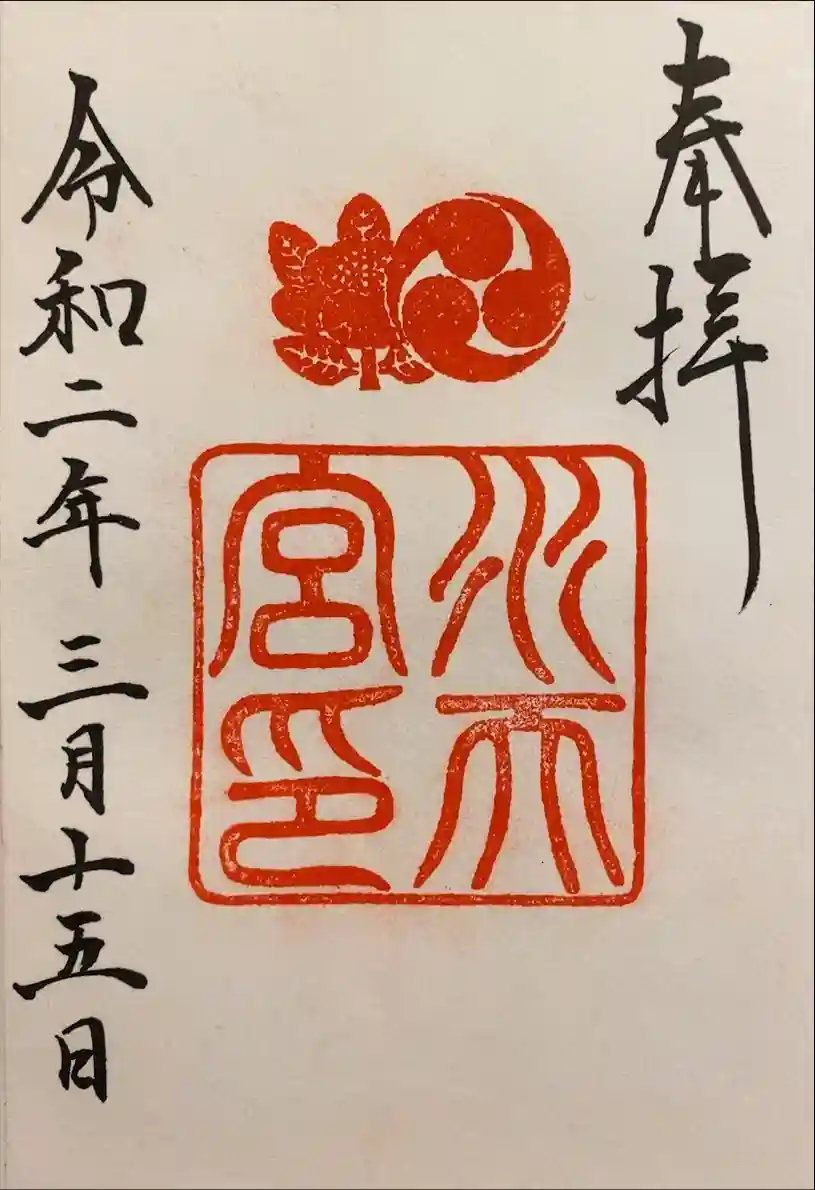 奉拝
水天
宮印
令和二年 三月十五日